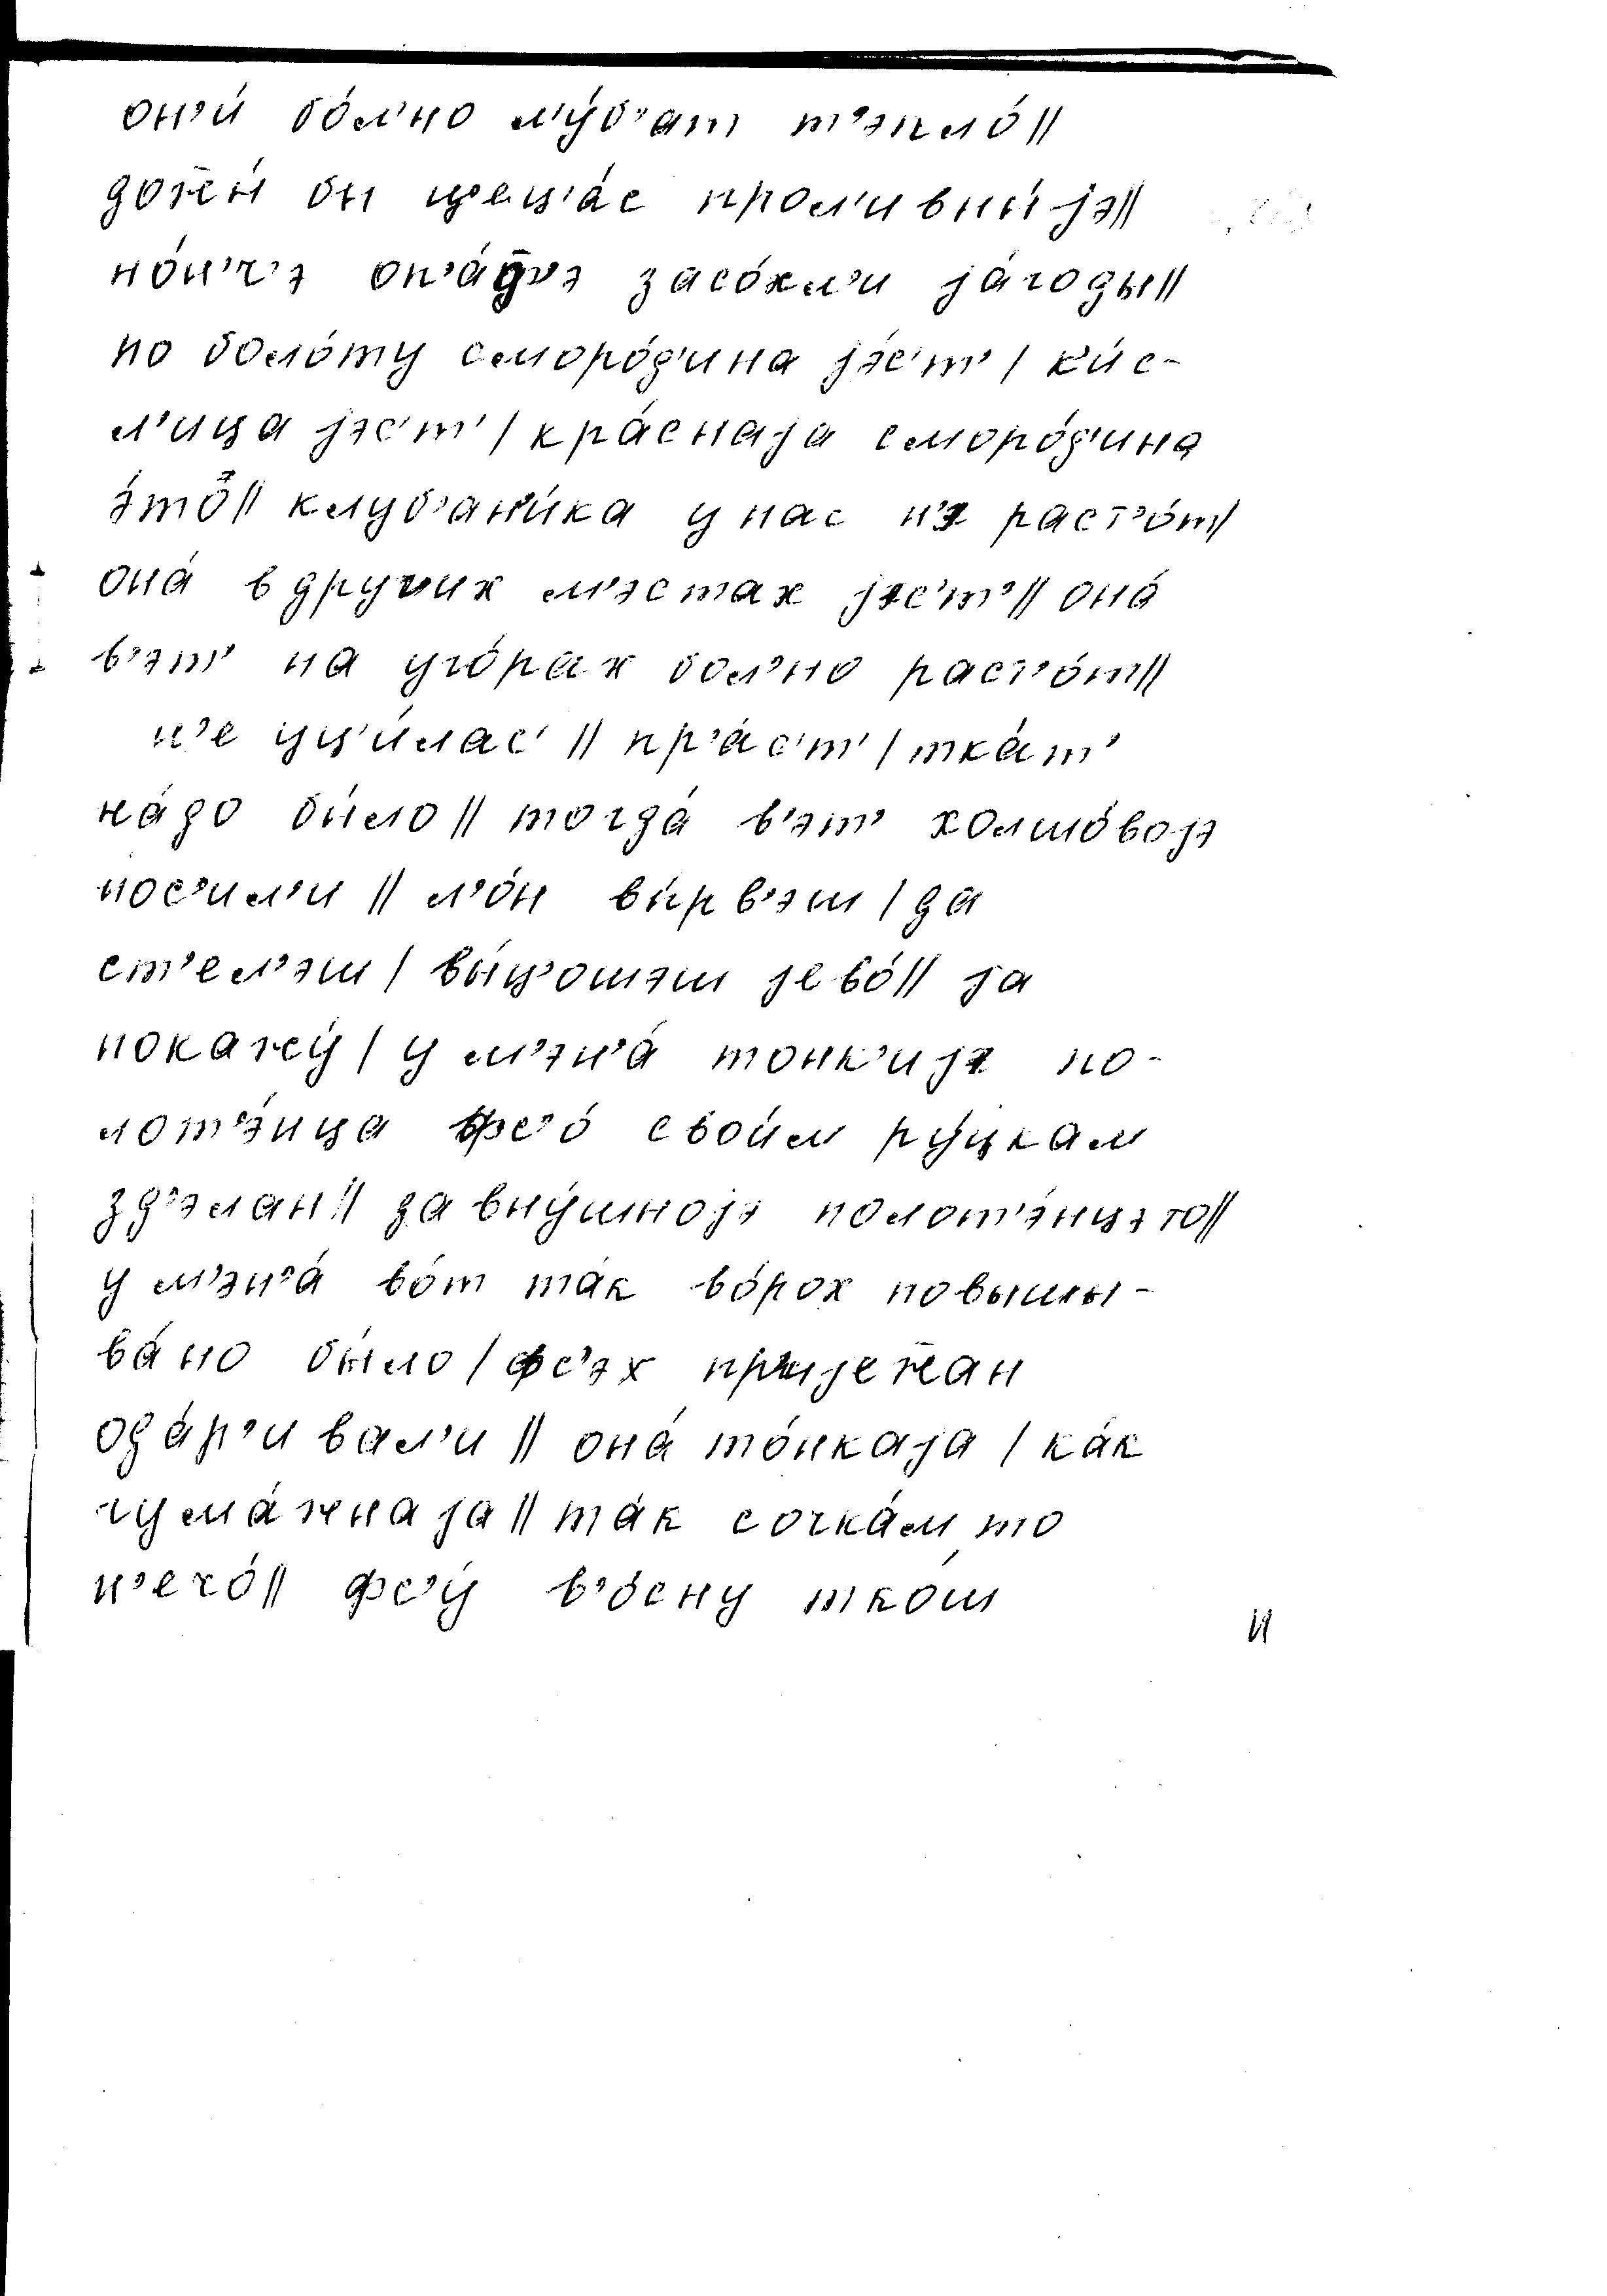 он’и́ бо́л’но л’у́б’ат т’эпло́ ||
дожжы́ бы ц’ец’а́с прол’ивны́јэ ||
но́н’ч’э оп’а́д’э засо́хл’и ја́годы ||
по боло́ту сморо́д’ина јэ́с’т’ / к’и́с-
л’ица јэс’т’ / кра́снаја сморо́д’ина
э́то || клуб’ан’и́ка у нас н’э раст’о́т /
она́ в други́х м’эстах јэс’т’ || она́
в’эт’ на уго́рах бол’но раст’о́т ||
н’е уц’и́лас’ || пр’а́с’т’ / тка́т’
на́до бы́ло || тогда́ в’эт’ холшо́војэ
нос’ил’и || л’о́н вы́рв’эш / да
ст’ел’эш / вы́ц’ошэш јево́ || ја
покажу́ / у м’эн’а́ тонк’ијэ по-
лот’э́нца фс’о́ свои́м ру́цкам
зд’элан || да вну́шнојэ полот’э́нцэто ||
у м’эн’а́ во́т та́к во́рох повышы-
ва́но бы́ло / фс’эх пријежжан
ода́р’ивал’и || она́ то́нкаја / ка́к
гума́жнаја || та́к сочка́м то
н’ечо́ || фс’у́ в’о́сну ткош